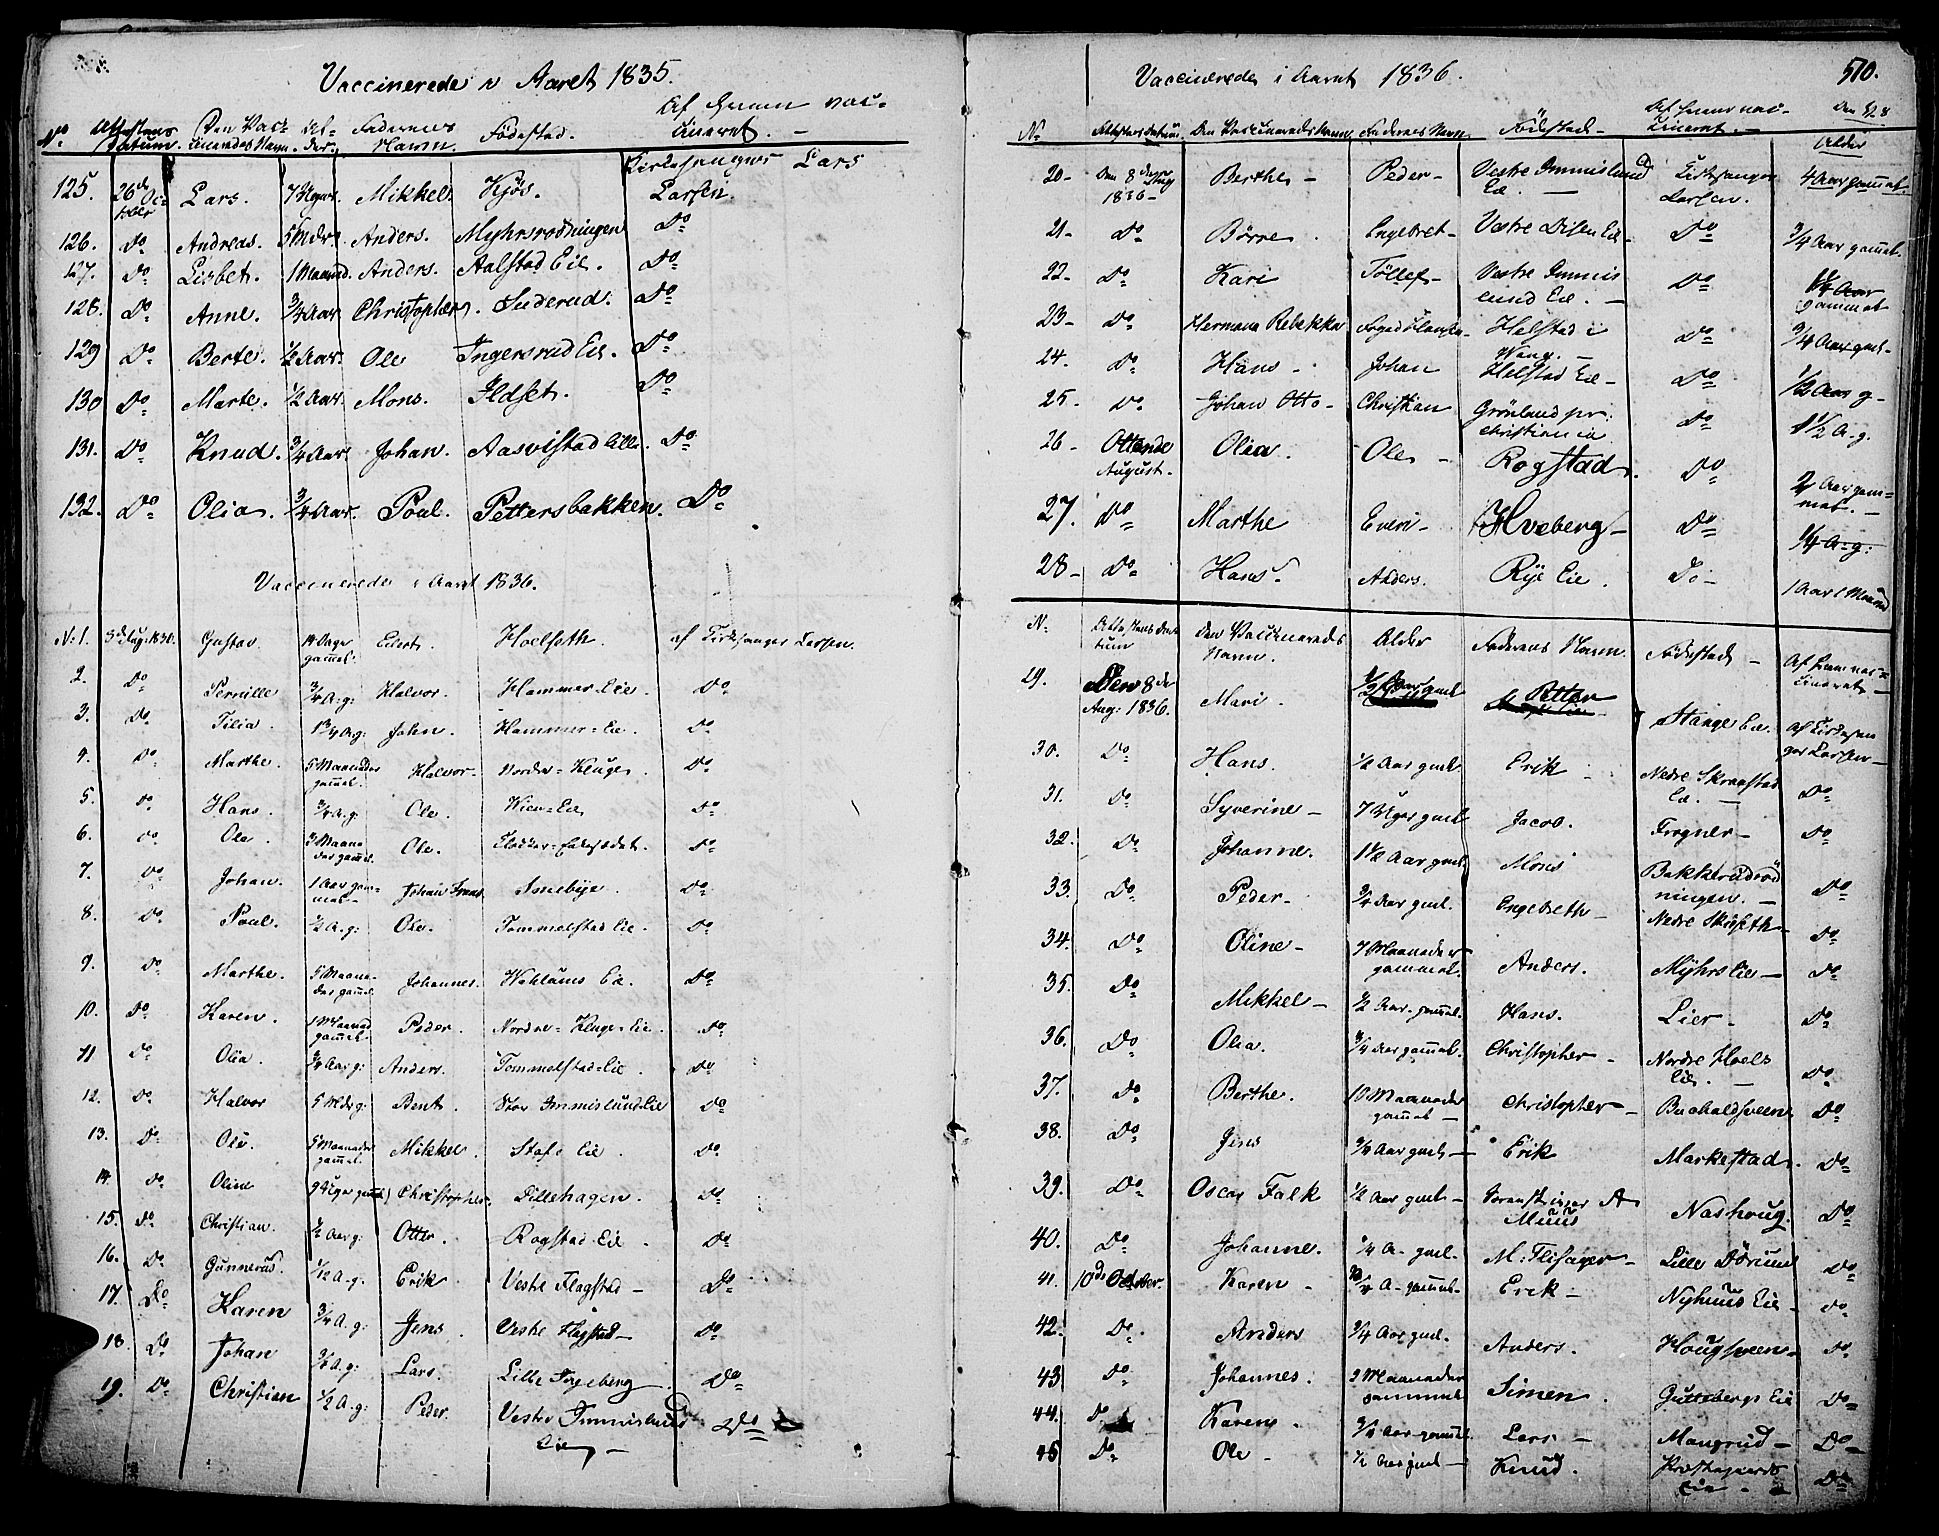 Vaccinerede i Aaret 1835.
No. Attestens Datum. Den Vaccineredes Navn. Alder. Faderens Navn. Födestad. Af hvem vaccineret. —
125. 26de October Lars. 7 Uger. Mikkel. Kjös. Kirkesanger Lars Larsen.
126. Do Andreas. 5 Mdr. Anders. Myhrsrodningen Do
127. Do Lisbet. 1 Maaned. Anders. Aalstad Eie. Do
128. Do Anne. 3/4 Aar. Christopher. Do
129 Do Berte. 1/2 Aar. Ole Ingersrud Eie. Do
130 Do Marte. 1/2 Aar. Mons. Ildset. Do
131. Do Knud. 3/4 Aar. Johan. Aasvistad lille. Do
132. Do Olia. 3/4 Aar. Poul. Pettersbakken. Do
Vaccinerede i Aaret 1836.
N. 1. Gustav. 14 Dage gammel. Hoelseth. af Kirkesanger Larsen.
2. Do Pernille 3/4 A: g: Halvor. Hammer Eie. Do
3. Do Tilia. 1 3/4 A: g: John. Hammer Eie. Do
4. Do Marthe. 5 Maaneder gammel. Halvor. Nordre Kluge. Do
5. Do Hans. 3/4 A: g: Ole. Wien Eie Do
6. Do Ole. Maaneder gammel. Ole. Do
7. Do Johan. 1 Aar gammel Johan Do
8. Do Poul. 1/2 A: g: Ole. Tommelstad Eie. Do
9. Do Marthe. 5 Maaneder gammel. Johannes. Eie. Do
10. Do Karen. 1 Maaned gammel. Peder. Nordre Kluge Eie. Do
11 Do Olia. 3/4 A: g: Anders. Tommelstad Eie. Do
12. Do Halvor 5 Mdr g: Bent. Stor Immislund Eie Do
13. Do Ole. 5 Maaneder gammel. Mikkel. Eie. Do
14. Do Oline 9 Uger gammel Christopher. Lillehagen. Do
15. Do Christian. 1/2 A: g: Otter. Rogstad Eie. Do
16. Do Gunnerus. 1/12 A. g: Erik. Vestre Flagstad — Do
17. Do Karen 3/4 A. g: Jens. Vestre Flagstad — Do
18. Do Johan 3/4 A. g: Lars. Lille Do
19. Do Christian 1/2 A: g: Peder. Vestre Immislund Eie — Do
Vaccinerede i Aaret 1836. 510.
No Attestens Datum. Den Vaccineredes Navn. Faderens Navn. Födestad — Af hvem vaccineret. — Alder
20 — Den 8de Aug 1836 — Berthe — Peder — Vestre Immislund Eie. — Kirkesanger Larsen. 4 Aar gammel.
21 — Do Börre. Engebret — Vestre Disen Eie — Do 3/4 Aar gammel.
22 — Do Kari Töllef — Vestre Immislund Eie. — Do 1/4 Aar gammel
23 — Do Hermana Rebekka Helstad i Vang. — Do 3/4 Aar gml —
24. Do Hans — Johan Helstad Eie — Do 1/2 Aar g —
25. Do Johan Otto — Christian Grönland pr. Christiania Do 1 1/2 A. g.
26 — Ottende August. Olia. Ole — Rogstad. Do Aar gammel. —
27. Do Marthe Even — Hveberg — Do 1/4 A: g:
28 — Do Hans. Anders. Rye Eie. Do — 1 Aar 1 Maaned
N. Attestens Datum den Vaccineredes Navn. Alder Faderens Navn. Födestad — Af hvem vaccineret —
29. Den 8de Aug: 1836. Mari. 1/2 Aar gml Petter Stange Eie. af Kirkesanger Larsen —
30. Do Hans. 1/2 Aar gml. Erik — Nedre Skraastad Eie. — Do
31. Do Syverine — 7 Uger gml Jacob. Frogner — Do
32. Do Johanne. 1 1/2 Aar gml. Mons Bakkerudrödningen. — Do
33. Do Peder — 3/4 Aar gml. Engebreth — Nedre Skirseth — Do
34. Do Oline — 7 Maaneder gammel. Anders. Myhrs Eie — Do
35. Do Mikkel — 1/2 Aar gammel. Hans. Lier — Do
36. Do Olia. 3/4 Aar gammel. Christopher — Nordre Hoels Eie. — Do
37. Do Berthe. 10 Maaneder gammel — Christopher — Do
38. Do Jens 3/4 Aar gml — Erik Markestad. Do
39. Do Oscar Falk 1/2 Aar gml — A Muus Nashoug. Do
40. Do Johanne. 1/4 A — gml. M: Flifager — Lille Dörum Do
41. 10de October. Karen — 3/4 A — gammel — Erik — Nyhuus Eie — Do
42. Do. Anders 3/4 Aar gml. Anders. Hougsveen — Do
43 Do Johannes. 9 Maaneder gammel Simen. Guttebergs Eie Do
44. Do Karen. 3/4 Aar gammel. Lars — Mangrud — Do
45 Do Ole — 1/2 Aar gml — Knud. Præstegaards Eie — Do